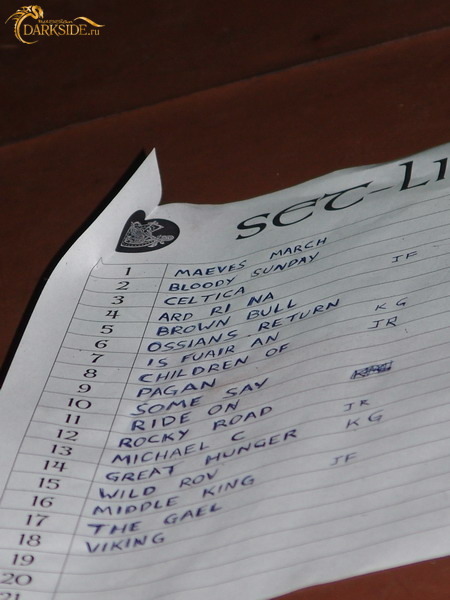 DARKSIDE.ru
SET-LI
1 MAEVES MARCH
2 BLOODY SUNDAY
3 CELTICA JF
4 ARD RI NA
5 BROWN BULL
6 OSSIANS RETURN
7 IS FUAIR AN KG
8 CHILDREN OF JR
9 PAGAN
10 SOME SAY
11 RIDE ON
12 ROCKY ROAD
13 MICHAEL C JR
14 GREAT HUNGER KG
15 WILD ROV
16 MIDDLE KING JF
17 THE GAEL
18 VIKING
19
20
21